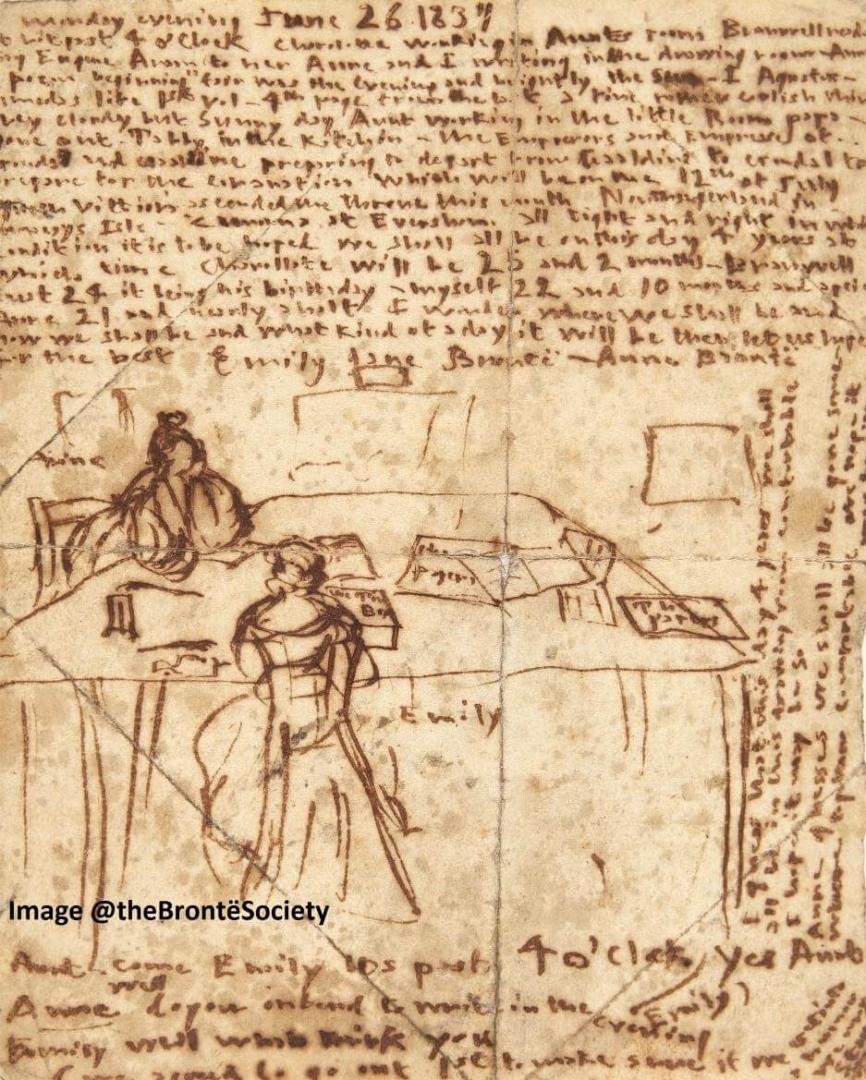 Monday evening June 26 1837
bit past 4 o'Clock Charolotte working in Aunts room Branwell
Eugene Aram to her Anne and I writing in the drawing room Anne
a poem beginning "fair was the evening and brightly the Sun - I Agustus -
Almedas life 1st vol - 4th page from the last a fine rather coolish thin
grey cloudy but Sunny day Aunt working in the little Room papa -
gone out. Tabby in the Kitchin - the Emperors and Empreses of
and preparing to depart from Gaaldine to
prepare for the coranation which will be on the 12th of July
Queen Vittiora ascended the throne this month. Northangerland in
Monceys Isle - Zamorna at Eversham. all tight and right in which
condition it is to be hoped we shall all be on this day 4 years at
which time Charollote will be 25 and 2 months - Branwell
just 24 it being his birthday - myself 22 and 10 months and a peice
Anne 21 and nearly a half I wonder where we shall be and
how we shall be and what kind of a day it will be then let us hope
for the best Emily Jane Brontë - Anne Brontë
Anne
The
papers
The Tin
Box
The
papers
Emily
I guess that this day 4 years we shall
all be in this drawing room comfortable
I hope it may be so
Anne guesses we shall all be gone some
where together comfortable
Image @theBrontëSociety
Aunt. come Emily its past 4 o'Clock, Yes Aunt
Anne well do you intend to write in the evening Emily
Emily well what think you
(we agreed to go out 1st to make sure